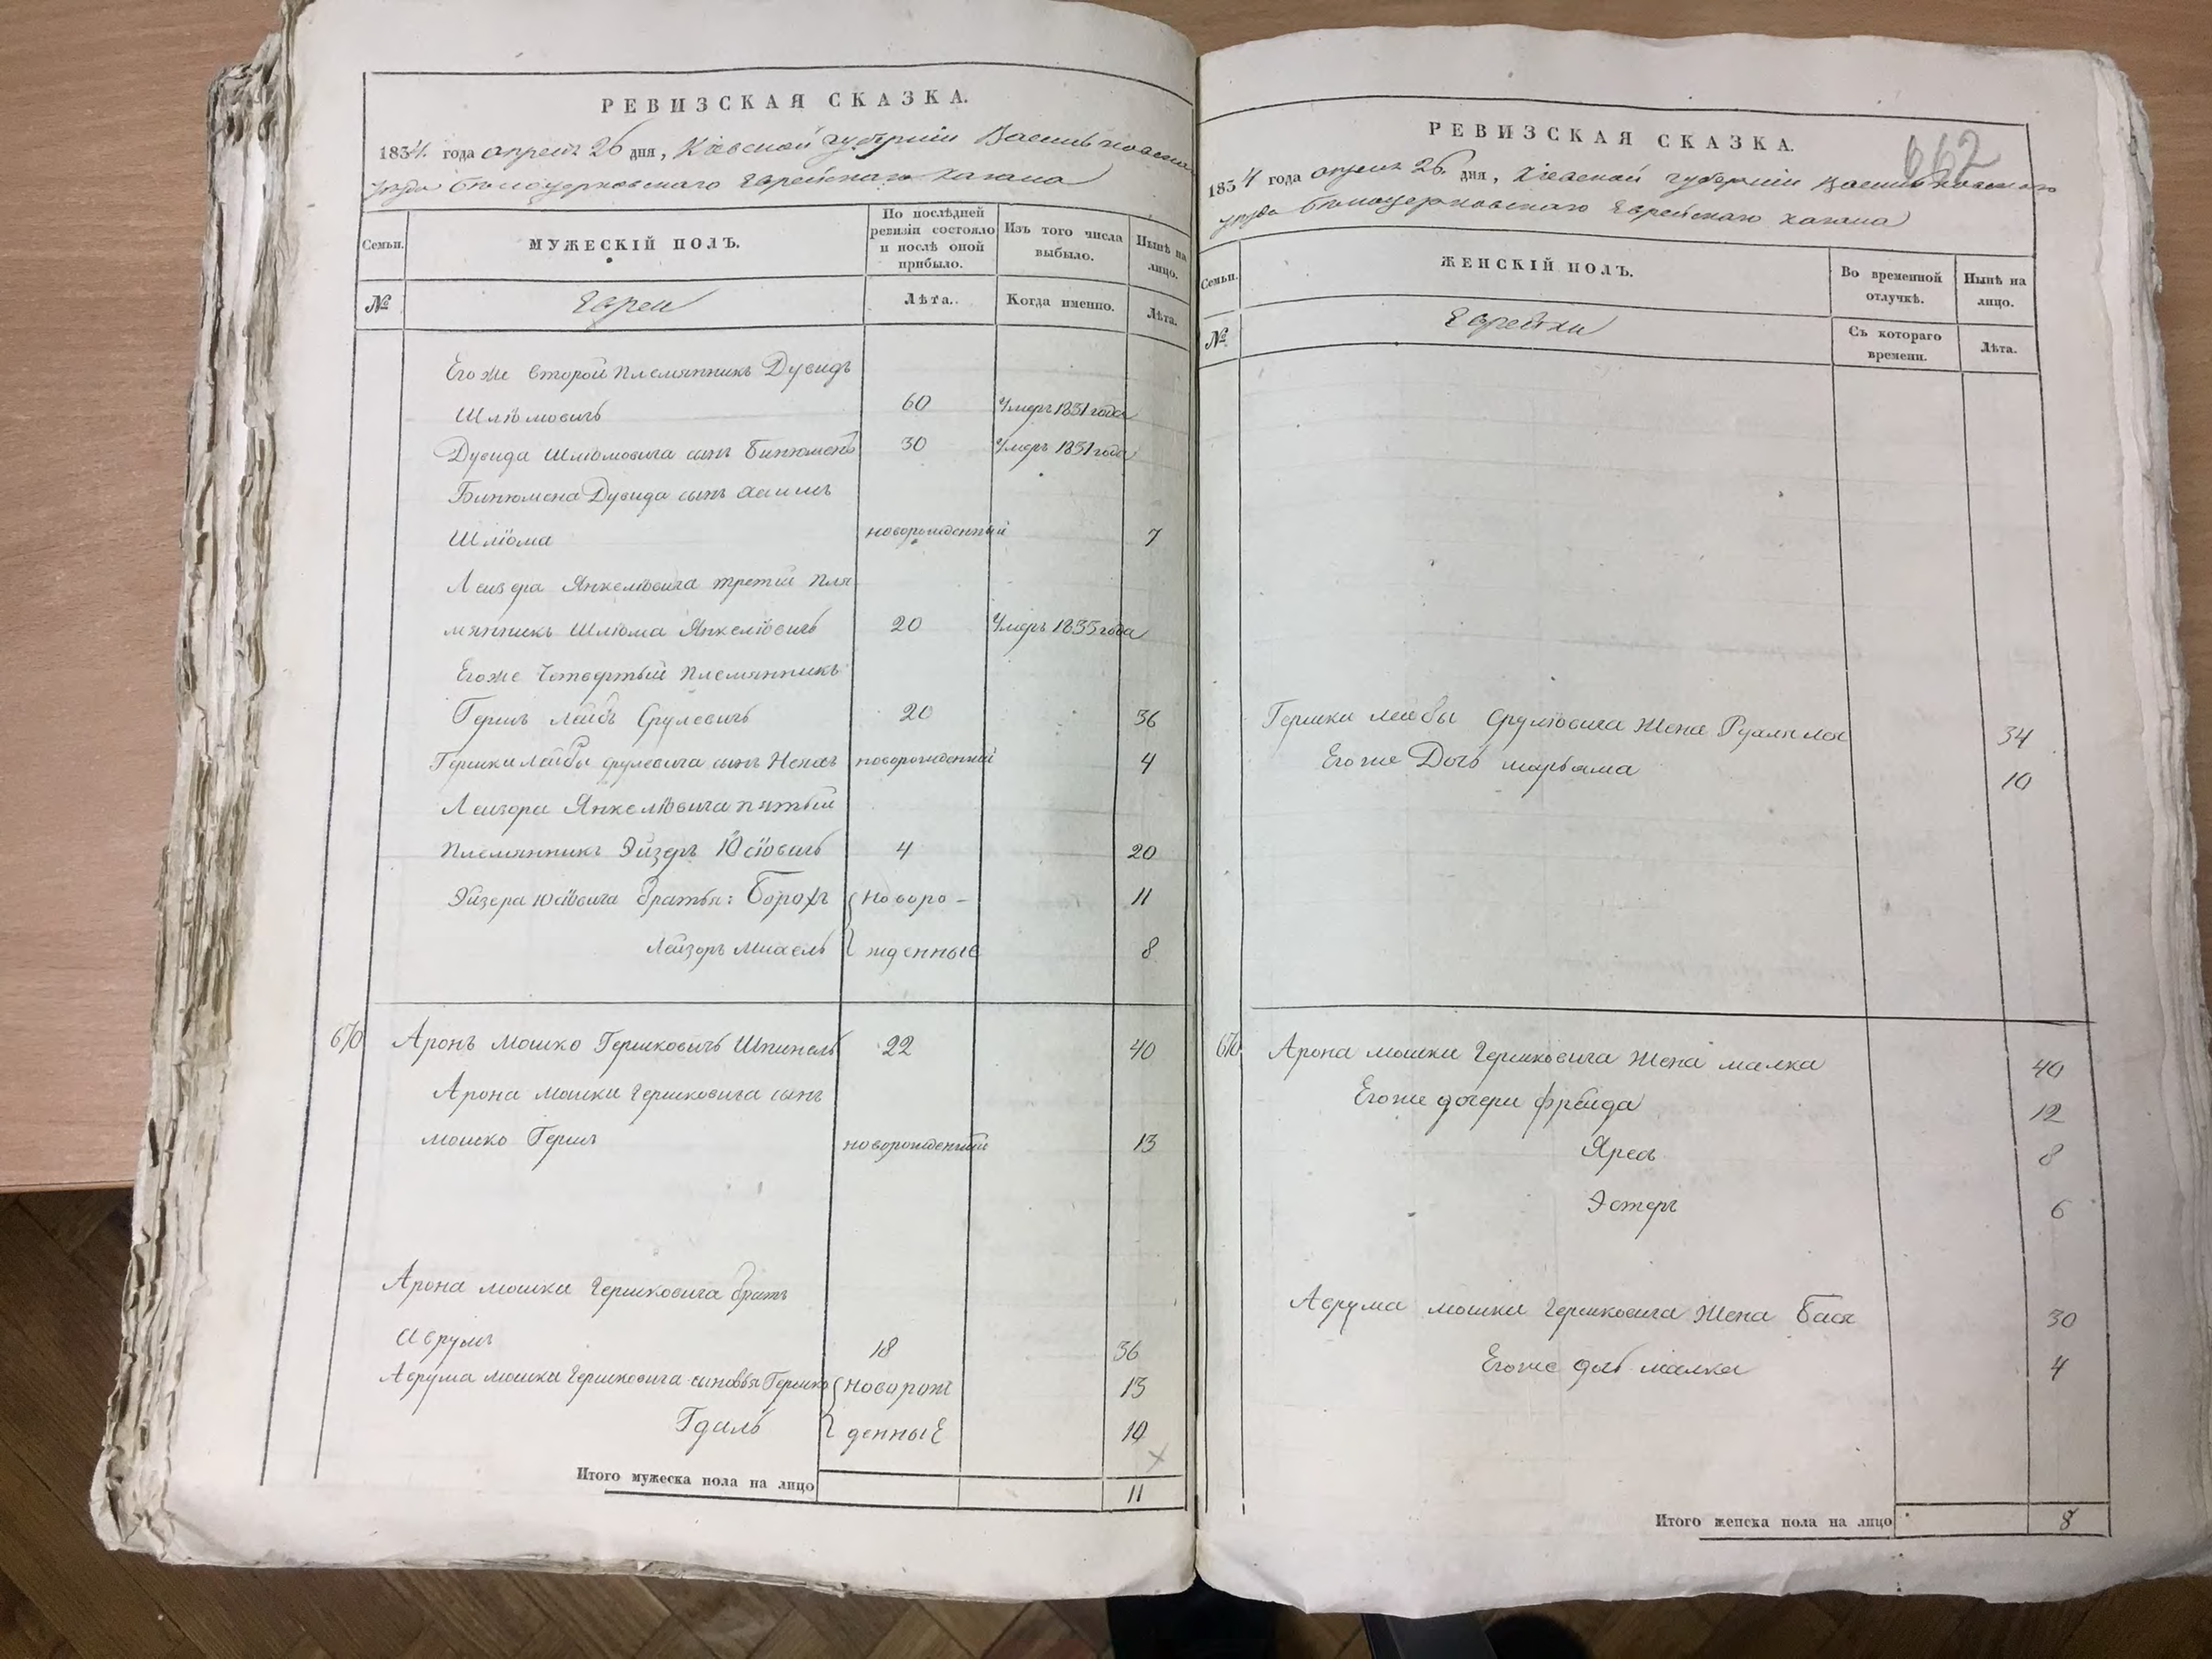 РЕВИЗСКАЯ СКАЗКА.
1834. года апреля 26 дня, Кіевской губерніи Васильковска
уезда бѣлоцерковскаго Еврейскаго кагала
Семьи.
МУЖЕСКІЙ ПОЛЪ.
По послѣдней ревизіи состояло и послѣ оной прибыло.
Изъ того числа выбыло.
Нынѣ на лицо.
№
Евреи
Лѣта.
Когда именно.
Лѣта.
Егоже второй племянникъ Дувидъ
Шліомовичь 60 Умеръ 1831 года
Дувида Шліомовича сынъ Бинюменъ 30 Умеръ 1831 года
Бинюмена Дувида сынъ
Шліома новорожденный 7
Лейзера Янкеліовича третій пле
мянникъ Шліома Янкеліовичь 20 Умеръ 1833 года
Егоже Четвертый племянникъ
Гершъ Лейбъ Срулевичь 20 36
Гершки Лейбы Срулевича сынъ новорожденный 4
Лейзора Янкеліовича пятый
племянникъ Эйзеръ Іосіовичь 4 20
Эйзера Іосіовича братья: Борохъ новоро- 11
Лейзоръ Михель жденные 8
670 Аронъ Мошко Гершковичь Шпинель 22 40
Арона мошки Гершковича сынъ
мошко Гершъ новорожденный 13
Арона мошки Гершковича братъ
Аврумъ 18 36
Аврума мошки Гершковича сыновья Гершко новорож 13
Гдаль денные 10
Итого мужеска пола на лицо 11
662
РЕВИЗСКАЯ СКАЗКА.
1834 года апреля 26. дня, Кіевской губерніи Васильковского
уезда бѣлоцерковскаго Еврейскаго кагала
Семьи.
ЖЕНСКІЙ ПОЛЪ.
Во временной отлучкѣ.
Нынѣ на лицо.
№
Еврейки
Съ котораго времени.
Лѣта.
Гершки лейбы Сруліовича жена 34
Егоже Дочь марьяма 10
670 Арона мошки Гершковича жена малка 40
Егоже дочери фрейда 12
8
Эстеръ 6
Аврума мошки Гершковича жена Бася 30
Егоже дочь малка 4
Итого женска пола на лицо 8